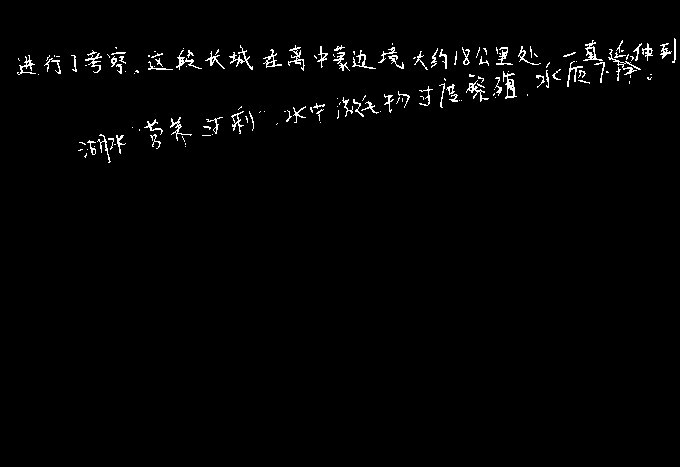 进行了考察。这段长城在离中蒙边境大约18公里处,一直延伸到
湖水“营养过剩”,水中微生物过度繁殖,水质下降。